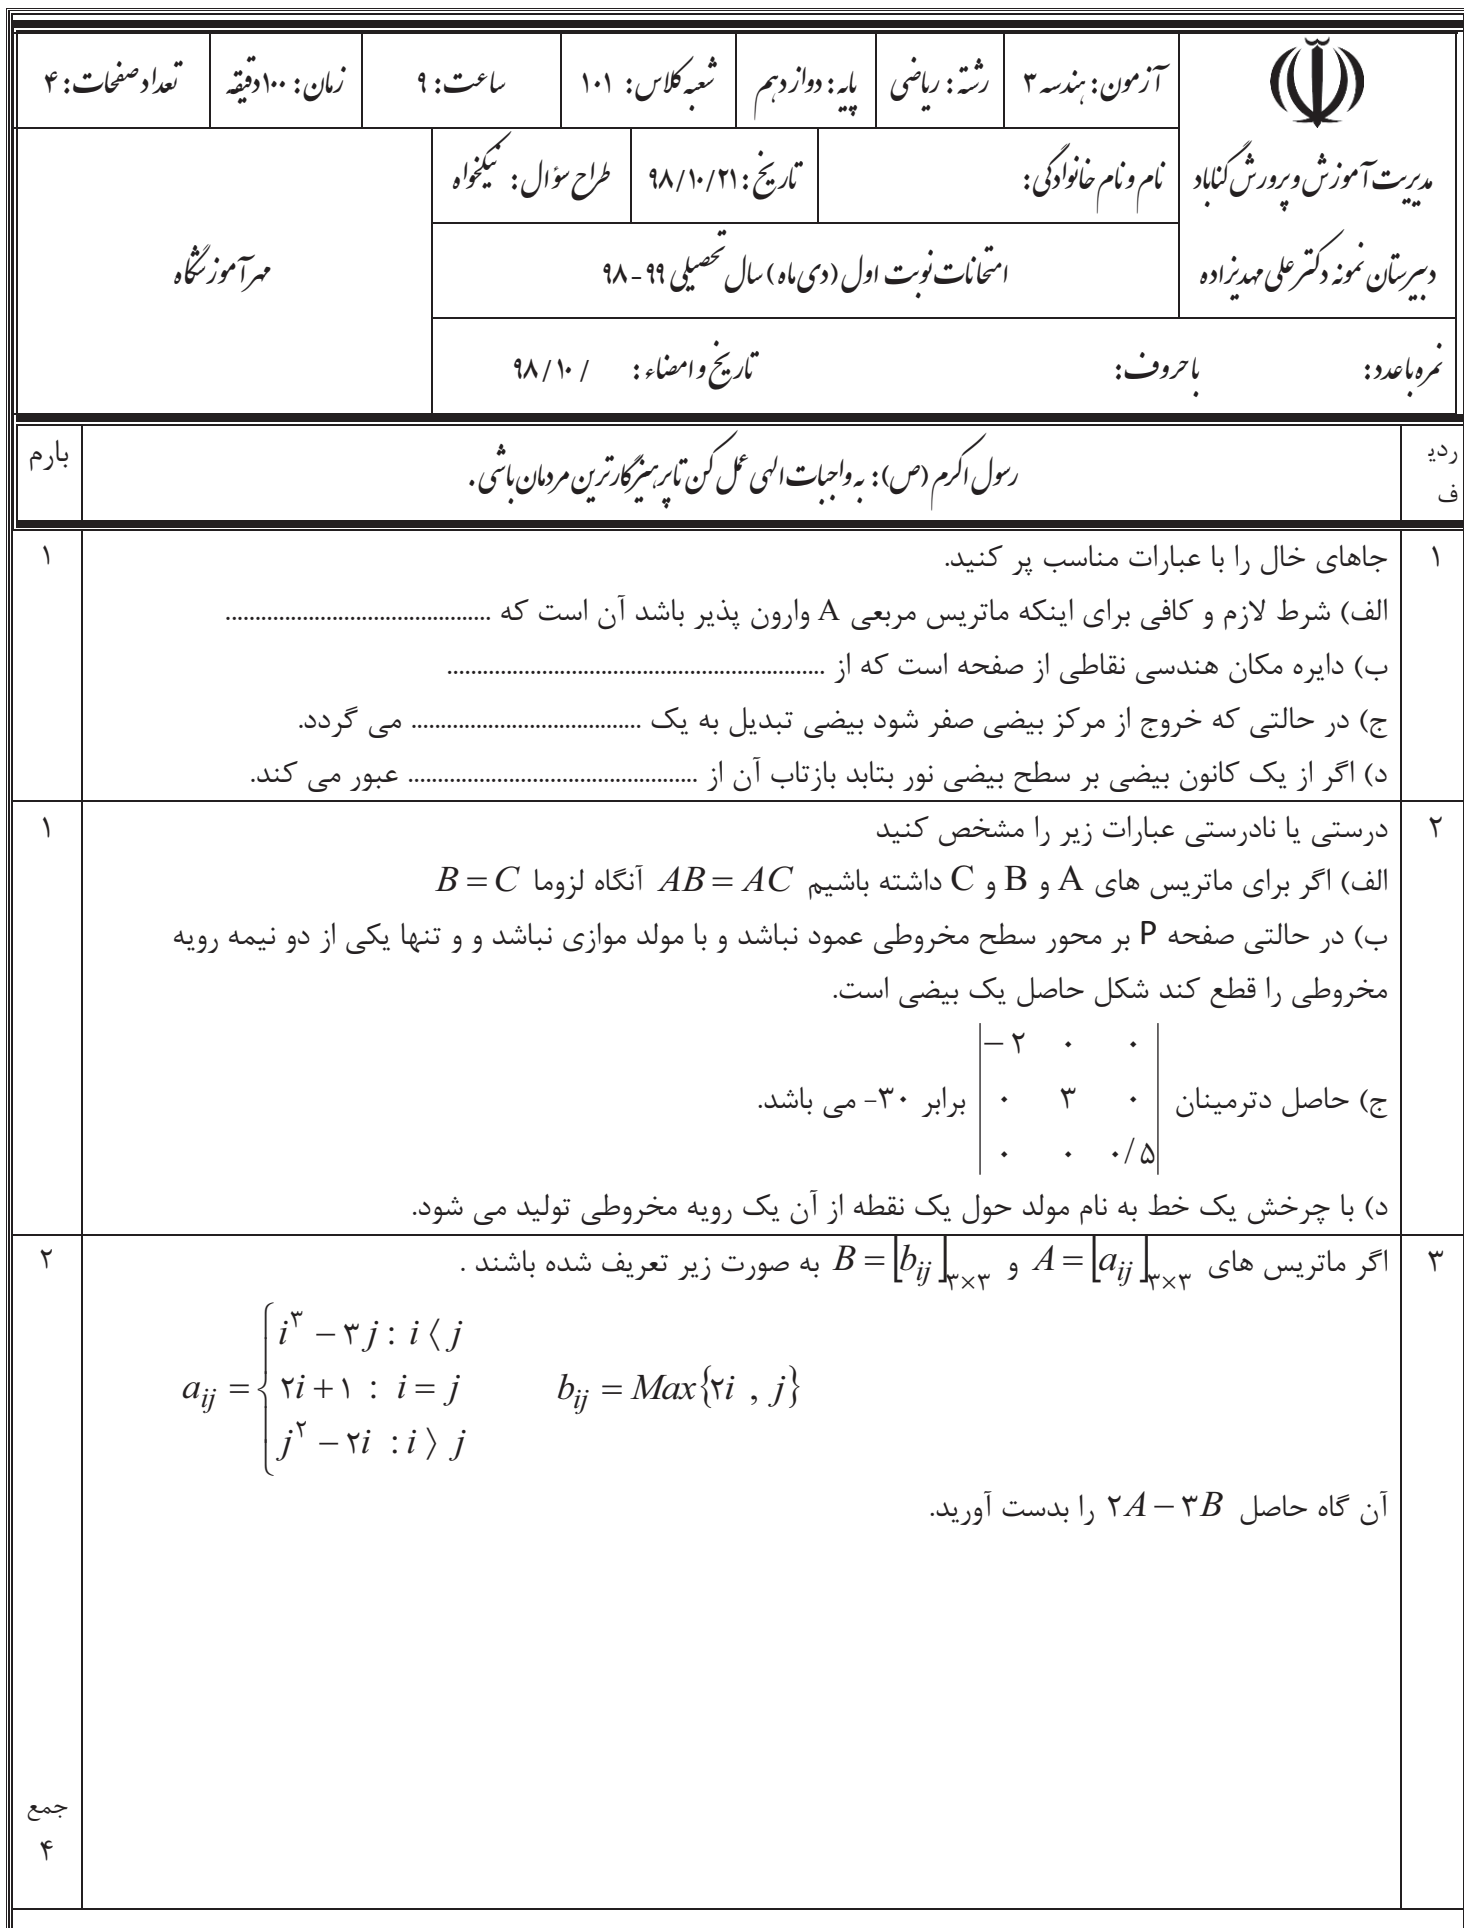 آزمون: هندسه ۳ رشته: ریاضی پایه: دوازدهم شعبه کلاس: ۱۰۱ ساعت: ۹ زمان: ۱۰۰دقیقه تعداد صفحات: ۴
مدیریت آموزش و پرورش گناباد نام و نام خانوادگی: تاریخ: ۹۸/۱۰/۲۱ طراح سؤال: نیکخواه
دبیرستان نمونه دکتر علی مهدیزاده امتحانات نوبت اول (دی ماه) سال تحصیلی ۹۹ - ۹۸ مهر آموزشگاه
نمره با عدد: با حروف: تاریخ و امضاء: / ۹۸/۱۰
ردیف رسول اکرم (ص): به واجبات الهی عمل کن تا پرهیزگارترین مردمان باشی. بارم
۱ جاهای خال را با عبارات مناسب پر کنید. ۱
الف) شرط لازم و کافی برای اینکه ماتریس مربعی A وارون پذیر باشد آن است که .............................................
ب) دایره مکان هندسی نقاطی از صفحه است که از ................................................................
ج) در حالتی که خروج از مرکز بیضی صفر شود بیضی تبدیل به یک ....................................... می گردد.
د) اگر از یک کانون بیضی بر سطح بیضی نور بتابد بازتاب آن از ................................................. عبور می کند.
۲ درستی یا نادرستی عبارات زیر را مشخص کنید ۱
الف) اگر برای ماتریس های A و B و C داشته باشیم AB = AC آنگاه لزوما B = C
ب) در حالتی صفحه P بر محور سطح مخروطی عمود نباشد و با مولد موازی نباشد و و تنها یکی از دو نیمه رویه
مخروطی را قطع کند شکل حاصل یک بیضی است.
ج) حاصل دترمینان |−۲ ۰ ۰
۰ ۳ ۰
۰ ۰ ۰/۵| برابر ۳۰- می باشد.
د) با چرخش یک خط به نام مولد حول یک نقطه از آن یک رویه مخروطی تولید می شود.
۳ اگر ماتریس های A = [a_ij]_۳×۳ و B = [b_ij]_۳×۳ به صورت زیر تعریف شده باشند . ۲
a_ij = { i^۳ − ۳j : i ⟨ j
۲i + ۱ : i = j b_ij = Max{۲i , j}
j^۲ − ۲i : i ⟩ j
آن گاه حاصل ۲A − ۳B را بدست آورید.
جمع
۴